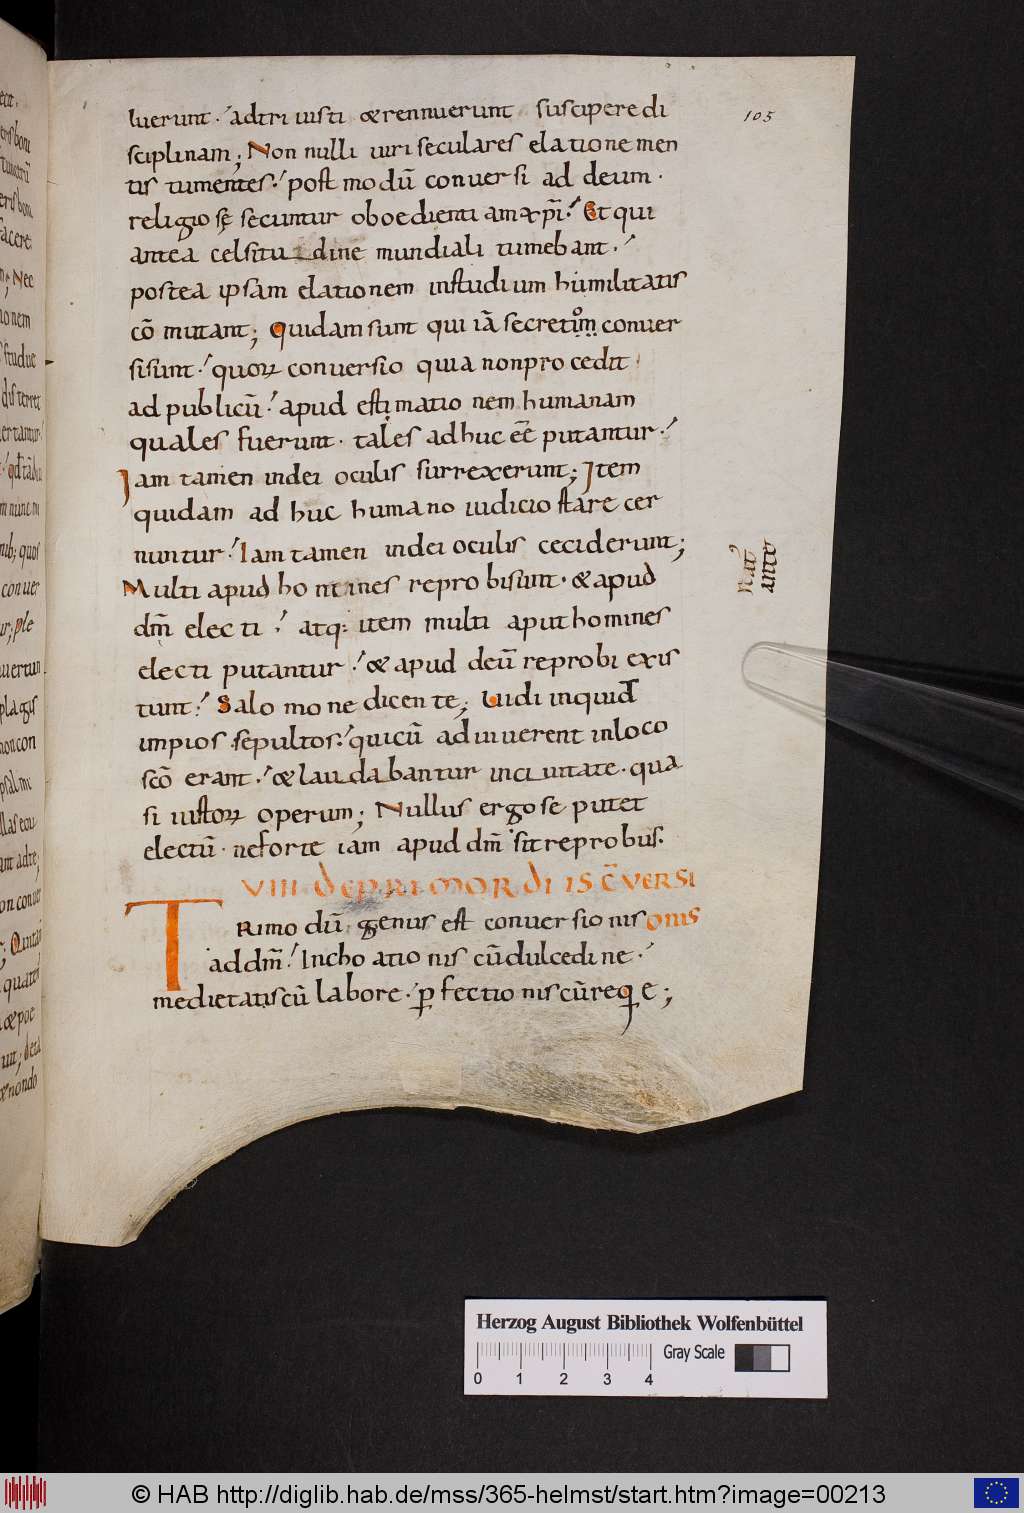 105
luerunt · adtri iusti & rennuerunt suscipere di
sciplinam; Non nulli uiri seculares elatione men
tis tumentes · post modū conuersi ad deum ·
religiosę secuntur oboedientiam xp̄i · Et qui
antea celsitudine mundiali tumebant ·
postea ipsam elationem instudium humilitatis
cōmutant; Quidam sunt qui iā secretim conuer
sisunt · quoꝝ conuersio quia nonprocedit
ad publicū · apud estimationem humanam
quales fuerunt · tales adhuc eē putantur ·
Jam tamen indei oculis surrexerunt; Jtem
quidam ad huc humano iudicio stare cer
nuntur · Iam tamen indei oculis ceciderunt;
Multi apud homines reprobi sunt · & apud
dm̄ electi · atq: item multi aput homines
electi putantur · & apud deū reprobi exis
tunt · Salomone dicente; Uidi inquid
impios sepultos · quicū aduiuerent inloco
scō erant · & laudabantur inciuitate · qua
si iustoꝝ operum; Nullus ergo se putet
electū · neforte iam apud dm̄ sit reprobus.
VIII de primordiis c̄versi
onis
Trimodū genus est conuersionis
ad dm̄ · Inchoationis cū dulcedine ·
medietatis cū labore · ꝑfectionis cū requie;
Herzog August Bibliothek Wolfenbüttel
Gray Scale
0 1 2 3 4
© HAB http://diglib.hab.de/mss/365-helmst/start.htm?image=00213